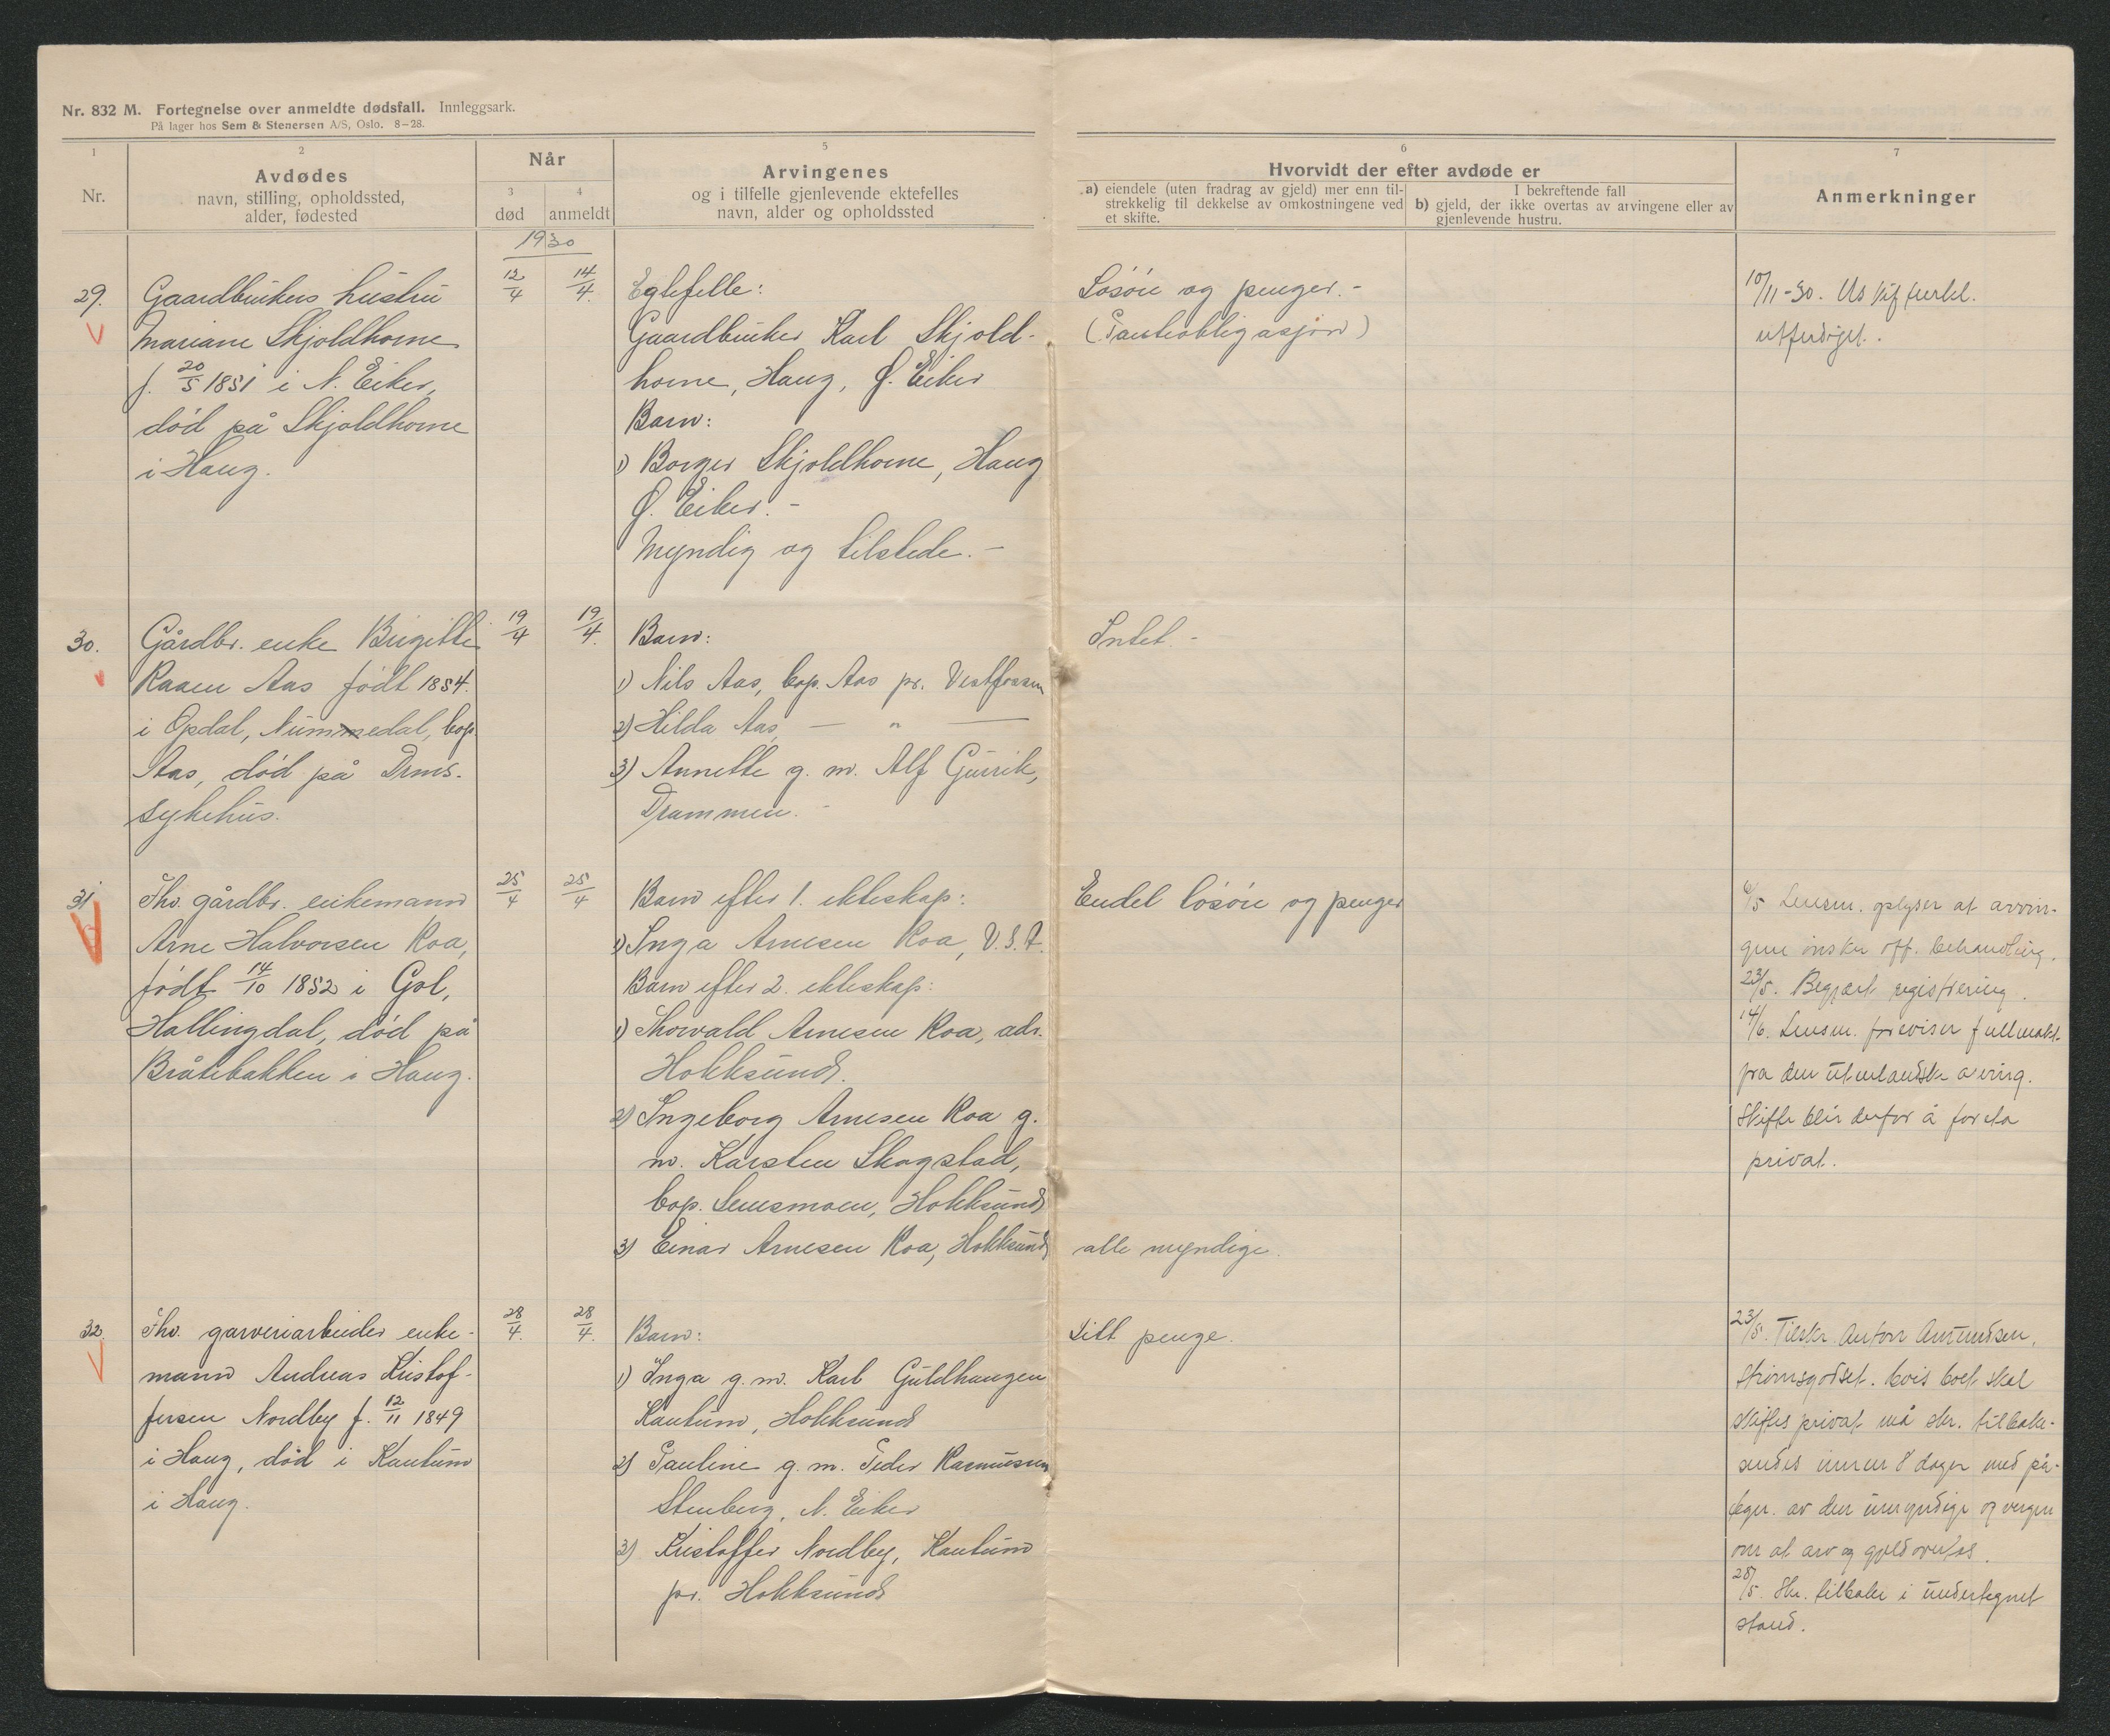 Nr. 832 M. Fortegnelse over anmeldte dødsfall. Innleggsark.
På lager hos Sem & Stenersen A/S, Oslo. 8—28.
1
Nr.
2
Avdødes
navn, stilling, opholdssted,
alder, fødested
Når
3
død
4
anmeldt
5
Arvingenes
og i tilfelle gjenlevende ektefelles
navn, alder og opholdssted
6
Hvorvidt der efter avdøde er
a) eiendele (uten fradrag av gjeld) mer enn til-
strekkelig til dekkelse av omkostningene ved
et skifte.
I bekreftende fall
b) gjeld, der ikke overtas av arvingene eller av
gjenlevende hustru.
7
Anmerkninger
1930
29.
Gaardbrukers hustru
Mariane Skjoldhorne
f. 20/5 1851 i N. Eiker,
død på Skjoldhorne
i Haug.
12/4
14/4.
Egtefelle:
Gaardbruker Karl Skjold-
horne, Haug, Ø. Eiker
Barn:
1) Borger Skjoldhorne, Haug
Ø. Eiker. -
Myndig og tilstede. -
Løsøre og penger. -
(Panteobligasjon)
10/11-30. Us
utferdiget.
30.
Gårdbr. enke Birgitte
Raaen Aas født 1854.
i Opdal, Nummedal, bop.
Aas, død på Drms.
sykehus.
19/4
19/4.
Barn:
1) Nils Aas, bop. Aas pr. Vestfossen
2) Hilda Aas, — " —
3) Annette g. m. Alf Gurrik,
Drammen. -
Intet. -
31.
Fhv. gårdbr. enkemann
Arne Halvorsen Roa,
født 14/10 1852 i Gol,
Hallingdal, død på
Bråtebakken i Haug.
25/4
25/4
Barn efter 1. ekteskap:
1) Inga Arnesen Roa, U.S.A.
Barn efter 2. ekteskap:
1) Thorvald Arnesen Roa, adr.
Hokksund.
2) Ingeborg Arnesen Roa g.
m. Karsten Skogstad,
bop. Lensmoen, Hokksund
3) Einar Arnesen Roa, Hokksund
Endel løsøre og penger
alle myndige.
6/5 Lensm. oplyser at arvin-
gene ønsker off. behandling.
23/5. Begjært registrering.
14/6. Lensm. foreviser fullmakt
fra den utenlandske arving.
Skifte blir derfor å foreta
privat.
32.
Fhv. garveriarbeider enke-
mann Andreas Kristof-
fersen Nordby f. 12/11 1849
i Haug, død i Kantum
i Haug.
28/4.
28/4.
Barn:
1) Inga g. m. Karl Guldhaugen
Kantum, Hokksund
2) Pauline g. m. Peder Rasmussen
Stenberg, N. Eiker
3) Kristoffer Nordby, Kantum
pr. Hokksund
Litt penge.
23/5. Tilskr. Anton Amundsen,
Strømsgodset. hvis boet skal
skiftes privat må skr. tilbake-
sendes innen 8 dager med på-
tegn. av den umyndige og vergen
om at arv og gjeld overtas.
28/5. Skr. tilbake i undertegnet
stand.